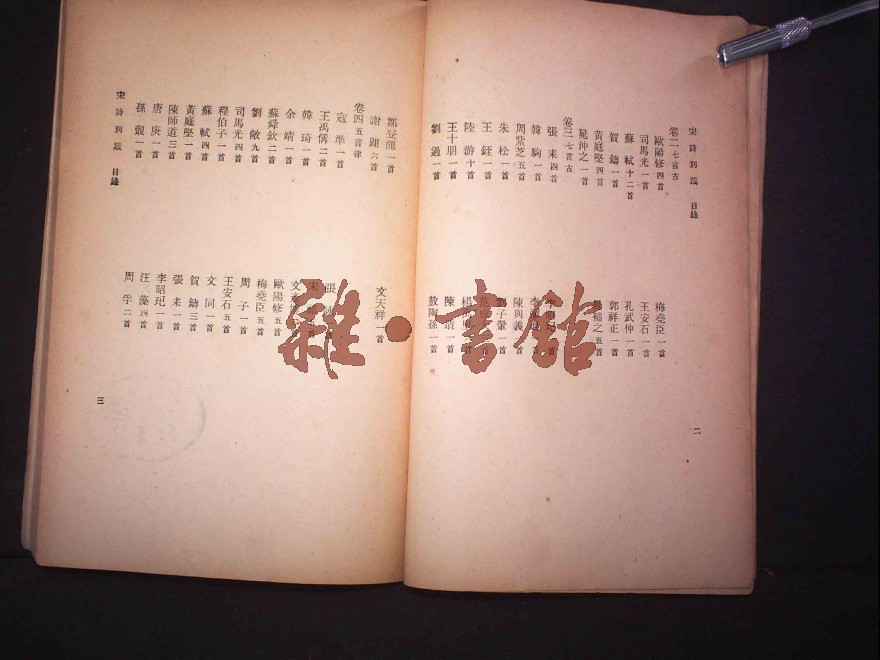 宋詩別裁 目錄 二
卷二 七言古
歐陽修四首 梅堯臣一首
司馬光一首 王安石一首
蘇軾十二首 孔武仲一首
賀鑄一首 郭祥正一首
黃庭堅四首 補之五首
晁沖之一首
卷三 七言古
張耒四首
韓駒一首
周紫芝五首 陳與義
朱松一首 子翬一首
王銍一首 一首
陸游十首 一首
王十朋一首 陳造一首
劉過一首 敖陶孫一首
鄒登龍一首 文天祥一首
謝翱六首
卷四 五言律
寇準一首 張
王禹偁二首 宋
韓琦一首 文
余靖一首 歐陽修五首
蘇舜欽二首 梅堯臣五首
劉敞九首 周子一首
司馬光四首 王安石五首
程伯子一首 文同一首
蘇軾四首 賀鑄三首
黃庭堅一首 張耒一首
陳師道三首 李昭玘一首
唐庚一首 汪藻四首
孫覿一首 周孚二首
宋詩別裁 目錄 三
雜·書館